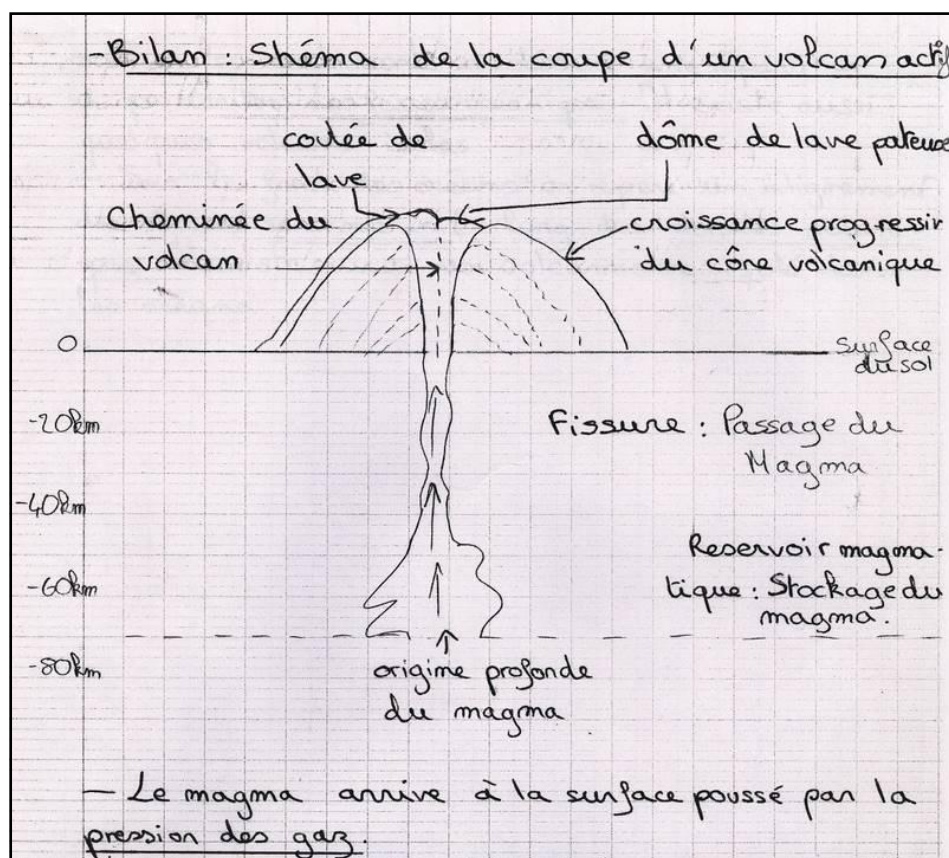 - Bilan : Shéma de la coupe d'un volcan actif
coulée de
lave
dôme de lave pateuse
Cheminée du
volcan
croissance progressiv
du cône volcanique
0
surface
du sol
-20km
Fissure : Passage du
Magma
-40km
Reservoir magma-
tique : Stockage du
magma.
-60km
-80km
origine profonde
du magma
- Le magma arrive à la surface poussé par la
pression des gaz.